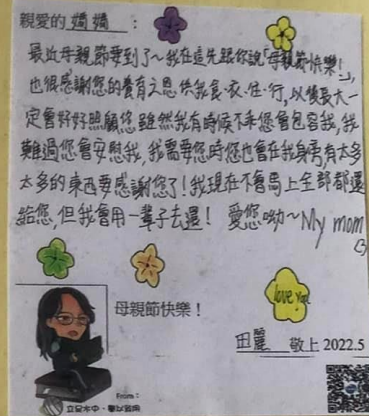 親愛的 嬌嬌 :
最近母親節要到了~我在這先跟你說「母親節快樂!」,
也很感謝您的養育之恩供我食、衣、住、行,以後長大一
定會好好照顧您雖然我有時候不乖您會包容我,我
難過您會安慰我,我需要您時您也會在我身旁,有太多
太多的東西要感謝您了!我現在不會馬上全部都還
給您,但我會用一輩子去還! 愛您呦~My mom
love you!
母親節快樂!
田麗 敬上 2022.5
From: